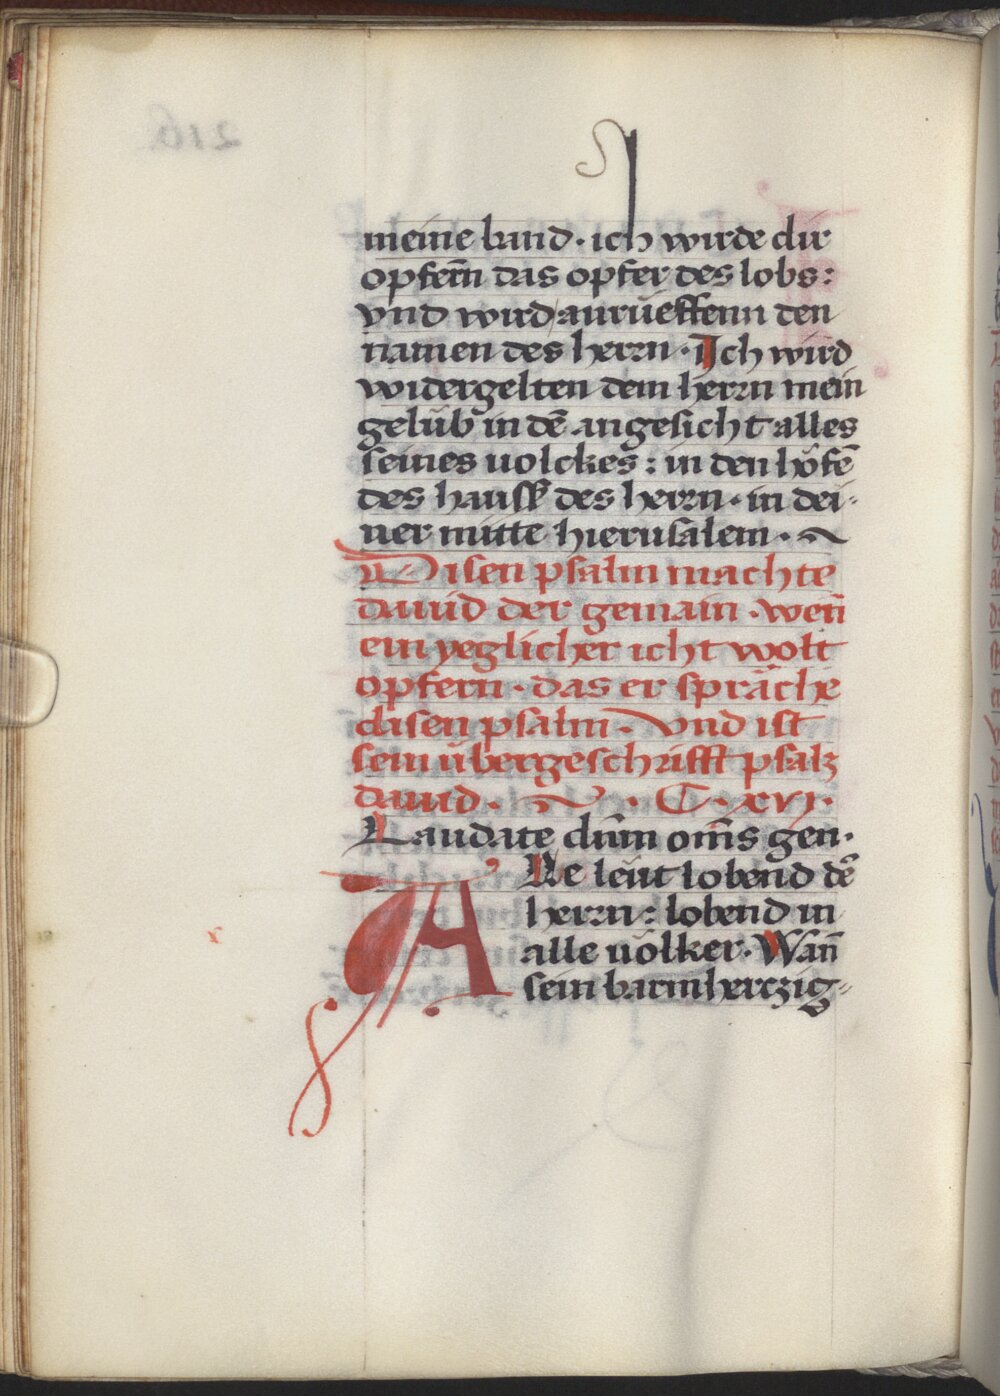 meine band · ich wirde dir
opfern̄ das opfer des lobs :
vnd wird anrüeffenn den
namen des herrn · Ich wird
widergelten dem herrn mein
gelüb in dē angesicht alles
seines uolckes : in den höfē
des hauß des herrn · in dei-
ner mitte hierusalem ·
Disen psalm machte
dauid der gemain · wen̄
ein yeglicher icht wolt
opfern · das er spräche
disen psalm · Vnd ist
sein übergeschrifft psalz
dauid · C · xvi ·
Laudate dn̄m om̄s gen ·
ALle leüt lobend dē
herrn : lobend in
alle uölker · Wan̄
sein barmherczig=